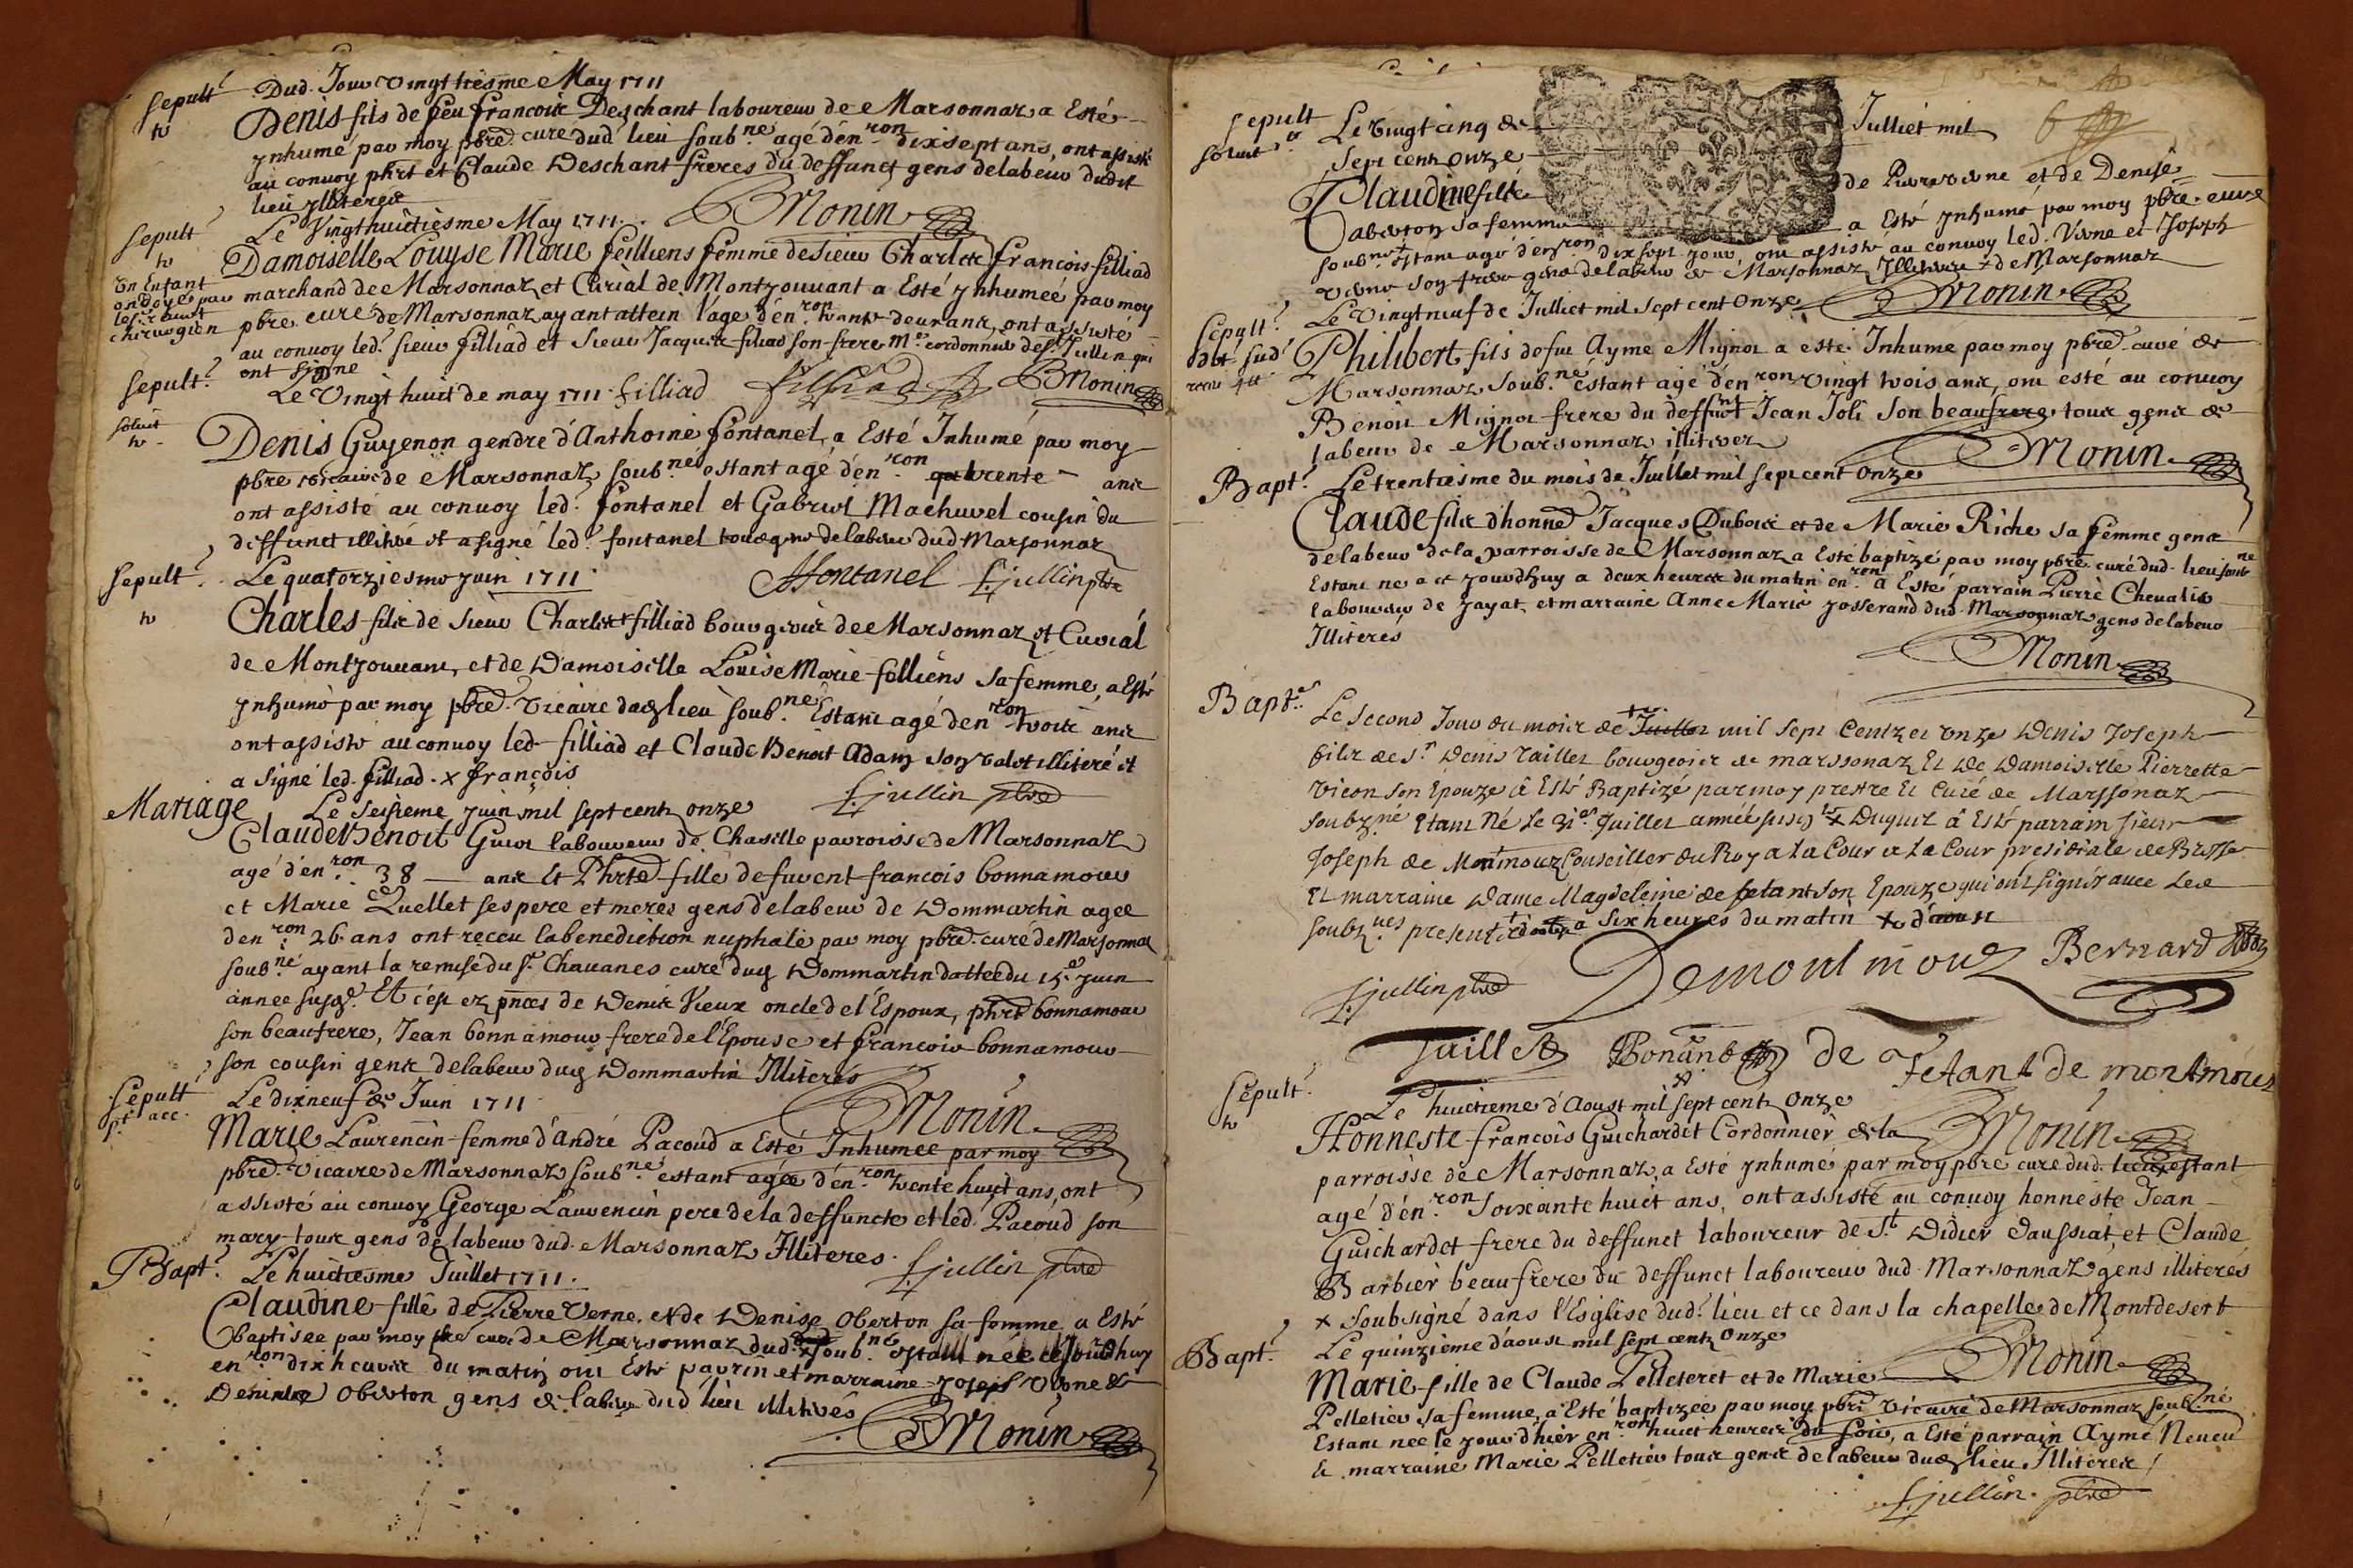 Sepult.
Dud. Jour Vingt tresme May 1711
Denis fils de feu francois Deschant laboureur de Marsonnaz a Esté
ynhumé par moy pbre curé dud lieu soub.né agé d'en.ron dix sept ans, ont assisté
au convoy phrt et Claude Deschant freres du deffunct gens delabeur dudit
lieu
Monin
Sepult
Le Vingthuictiesme May 1711.
Un Enfant
ondoyé par
chirurgien
Damoiselle Louyse Marie feilliens femme de sieur Charles francois filliad
marchand de Marsonnaz et Curial de Montjouvant a Esté ynhumeé par moy
pbre curé de Marsonnaz ayant attein l'age d'en.ron trante deux ans, ont assisté
au convoy led. sieur filliad et sieur Jacques filiad son frere M.e cordonnier de St Jullin qui
ont signe
filliad Monin
Sepult.
solvit
Le Vingt huict de may 1711 filliad
Denis Guyenon gendre d'Anthoine fontanel, a Esté Inhumé par moy
pbre vicaire de Marsonnaz soub.né estant agé d'en.ron trente ans
ont assisté au convoy led. fontanel et Gabriel Machurel cousin du
deffunct illitéré et a signé led. fontanel tous gens delabeur dud Marsonnaz
Sepult.
Le quatorziesme juin 1711
fontanel f. jullin pbre
Charles fils de sieur Charles filliad bourgeois de Marsonnaz et Curial
de Montjouvant, et de Damoiselle Louise Marie felliens sa femme, a Esté
ynhumé par moy pbre Vicaire dud lieu soub.né Estant agé d'en.ron trois ans
ont assisté au convoy led filliad et Claude Benoit Adam son valet illiteré et
a signé led. filliad. x françois
f. jullin pbre
Mariage
Le Seisieme juin mil sept cent onze
Claude Benoit Guiot laboureur de Chasille parroisse de Marsonnaz
agé d'en.ron 38 ans Et Phrte fille de fuvent francois bonnamour
et Marie Quellet ses pere et meres gens delabeur de Dommartin agee
d'en.ron 26 ans ont receu la benediction nuptiale par moy pbre curé de Marsonnaz
soub.né ayant la remise du Sr. Chavanes curé dud Dommartin dattee du 15.e juin
année susd. Et c'est ez pnces de Denis Vieux oncle de l'Espoux, phrt bonnamour
son beaufrere, Jean bonnamour frere de l'Epouse et francois bonnamour
son cousin gens delabeur dud Dommartin Illiteres
Monin
Sepult
Le dixneuf de Juin 1711
Marie Laurencin femme d'André Pacoud a Esté Inhumee par moy
pbre Vicaire de Marsonnaz soub.né estant agée d'en.ron trente huict ans, ont
assisté au convoy George Laurencin pere de la deffuncte et led. Pacoud son
mary tous gens de labeur dud. Marsonnaz Illiteres.
f. jullin pbre
Bapt.
Le huictiesme Juillet 1711.
Claudine fille de Pierre Verne et de Denise Oberton sa femme a Esté
baptisée par moy pbre curé de Marsonnaz dud. soub.né estant née ce Jourdhuy
en.ron dix heures du matin ont Esté parrin et marraine Joseph Verne et
Oberton gens de labeur dud lieu illiterés
Monin
Sepult
solvit
Le vingt cinq de Julliet mil
sept cent onze
Claudine fille de Pierre Verne et de Denise
Oberton sa femme a Esté ynhumé par moy pbre curé
soub.né Estant agé d'en.ron dix sept jour, ont assisté au convoy led. Verne et Joseph
Verne son frere gens delabeur de Marsonnaz de Marsonnaz
Monin
Sepult.
Le Vingtneuf de Julliet mil sept cent onze
Philibert fils de feu Ayme Mignot a esté Inhume par moy pbre curé de
Marsonnaz soub.né estant agé d'en.ron vingt trois ans, ont esté au convoy
Benoit Mignot frere du deffunct Jean Joli son beaufrere tous gens de
labeur de Marsonnaz illiterez
Monin
Bapt.
Le trentiesme du mois de Juillet mil sept cent onze
Claude fils d'honne Jacques Dubois et de Marie Riche sa femme gens
delabeur de la parroisse de Marsonnaz a Esté baptizé par moy pbre curé dud. lieu soub.né
Estant ne a ce jourdhuy a deux heures du matin en.ron a Esté parrain Pierre Chevalier
laboureur de Jayat, et marraine Anne Marie Josserand dud. Marsonnaz gens delabeur
Illiterés
Monin
Bapt.
Le second Jour du moix de Juillet mil sept Centz et onze Denis Joseph
filz de Sr Denis Taillet bourgeoix de marssonaz Et de Damoiselle Pierrette
son Epouze â Esté Baptizé par moy prestre Et Curé de Marssonaz
soubz.né Etant Né Le 31.e Juillet année susd Duquel â Esté parrain sieur
Joseph de Montmouz Conseiller du Roy a la Cour et La Cour presidiale de Bresse
Et marraine Dame Magdeleine de fetant son Epouze qui ont signéz avec Led
soubz.nes presents a six heures du matin x d'aoust
f. jullin pbre Demontmouz Bernard
Taillet Bonan de Fetant de montmouz
Sepult.
Le huictieme d'Aoust mil sept cent onze
Monin
Honneste francois Guichardet Cordonnier de la
parroisse de Marsonnaz, a Esté ynhumé par moy pbre curé dud. lieu x estant
agé d'en.ron soixante huict ans, ont assisté au convoy honneste Jean
Guichardet frere du deffunct laboureur de St. Didier d'aussiat, et Claude
Barbier beaufrere du deffunct laboureur dud. Marsonnaz gens illiterés
x soubsigné dans l'Esglise dud. lieu et ce dans la chapelle de Montdesert
Bapt.
Le quinzieme d'aoust mil sept centz onze
Monin
Marie fille de Claude Pelleteret et de Marie
Pelletier sa femme, a Esté baptizée par moy pbre vicaire de Marsonnaz soub.né
Estant née le jour d'hier en.ron huict heures du soir, a Esté parrain Aymé Neveu
Et marraine Marie Pelletier tous gens delabeur dud lieu Illiteres
f. jullin pbre